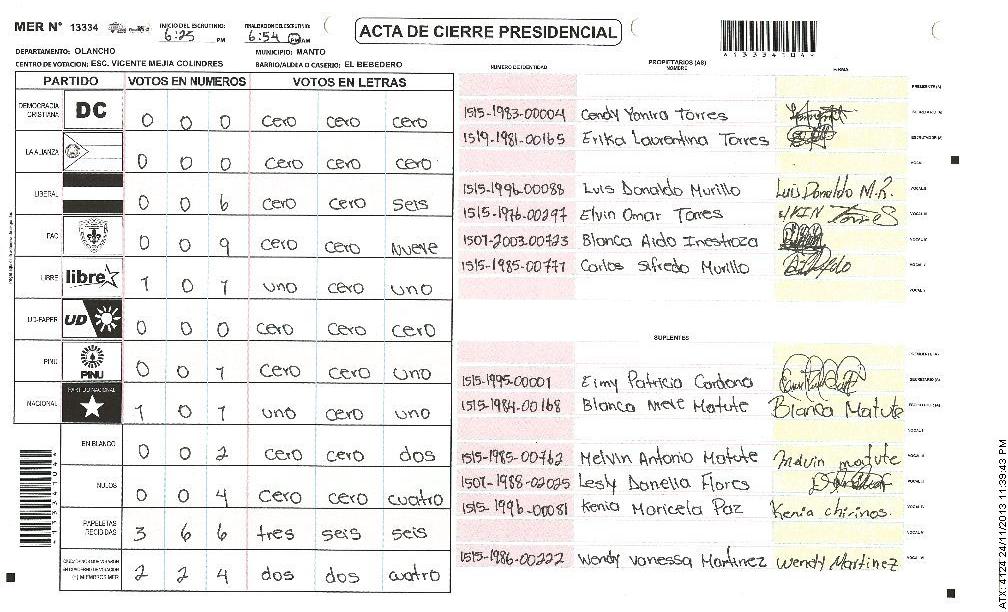 MER Nº 13334
INICIO DEL ESCRUTINIO: 6:25 PM
FINALIZACION DEL ESCRUTINIO: 6:54 PM AM
ACTA DE CIERRE PRESIDENCIAL
DEPARTAMENTO: OLANCHO
MUNICIPIO: MANTO
CENTRO DE VOTACION: ESC. VICENTE MEJIA COLINDRES
BARRIO/ALDEA O CASERIO: EL BEBEDERO
PARTIDO VOTOS EN NUMEROS VOTOS EN LETRAS
DEMOCRACIA CRISTIANA DC 0 0 0 cero cero cero
LA ALIANZA 0 0 0 cero cero cero
LIBERAL 0 0 6 cero cero seis
PAC 0 0 9 cero cero nueve
LIBRE libre 1 0 1 uno cero uno
UD-FAPER UD 0 0 0 cero cero cero
PINU PINU 0 0 1 cero cero uno
NACIONAL PARTIDO NACIONAL 1 0 1 uno cero uno
EN BLANCO 0 0 2 cero cero dos
NULOS 0 0 4 cero cero cuatro
PAPELETAS RECIBIDAS 3 6 6 tres seis seis
2 2 4 dos dos cuatro
NUMERO DE IDENTIDAD
PROPIETARIOS (AS)
NOMBRE
FIRMA
PRESIDENTE (A)
1515-1983-00004 Cendy Yanira Torres SECRETARIO (A)
1519-1981-00165 Erika Laurentina Torres ESCRUTADOR (A)
VOCAL I
1515-1996-00088 Luis Donaldo Murillo Luis Donaldo M.R. VOCAL II
1515-1976-00297 Elvin Omar Torres VOCAL III
1507-2003-00723 Blanca Aido Inestroza VOCAL IV
1515-1985-00777 Carlos Sifredo Murillo VOCAL V
SUPLENTES
PRESIDENTE (A)
1515-1995-00001 Eimy Patricia Cardona SECRETARIO (A)
1515-1984-00168 Blanca Nieve Matute Blanca Matute
VOCAL I
1515-1985-00762 Melvin Antonio Matute melvin matute VOCAL II
1507-1988-02025 Lesly Danelia Flores
1515-1996-00081 Kenia Maricela Paz Kenia chirinos. VOCAL IV
VOCAL V
1515-1986-00222 Wendy Vanessa Martinez Wendy Martinez
ATX: 4124 24/11/2013 11:39:43 PM